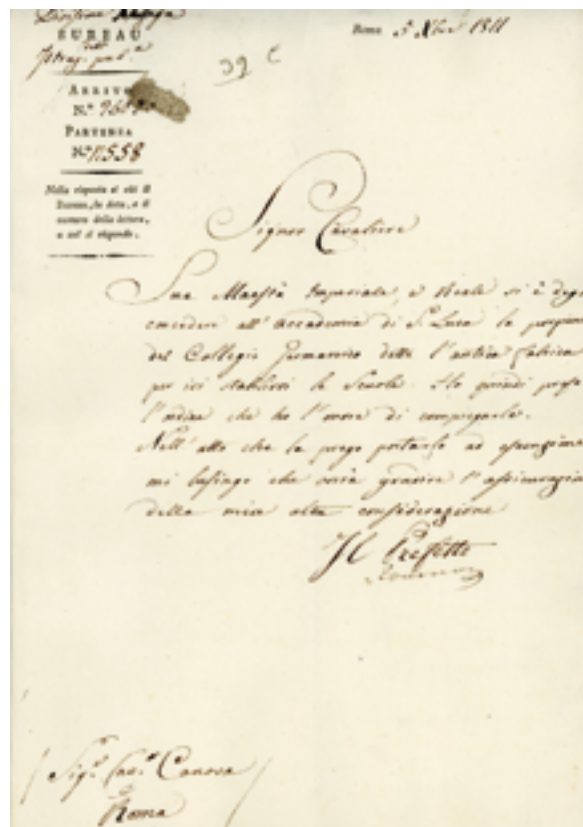 BUREAU
Roma 5 Xbre 1811
39 C
ARRIVO
N.°
PARTENZA
N.° 11558
Nella risposta si citi il
Bureau, la data, e il
numero della lettera,
a cui si risponde.
Signor Cavaliere
Sua Maestà Imperiale, e Reale si è
concedere all' Accademia di S. Luca la
del Collegio Germanico detta l'antica fabrica
per ivi stabilirsi le Scuole. Ho quindi
l'ordine che ho l'onore di compiegarle.
Nell' atto che la prego portarlo ad
mi lusingo che vorrà gradire l'
della mia alta considerazione
Il Prefetto
Sig.r Cav.r Canova
Roma